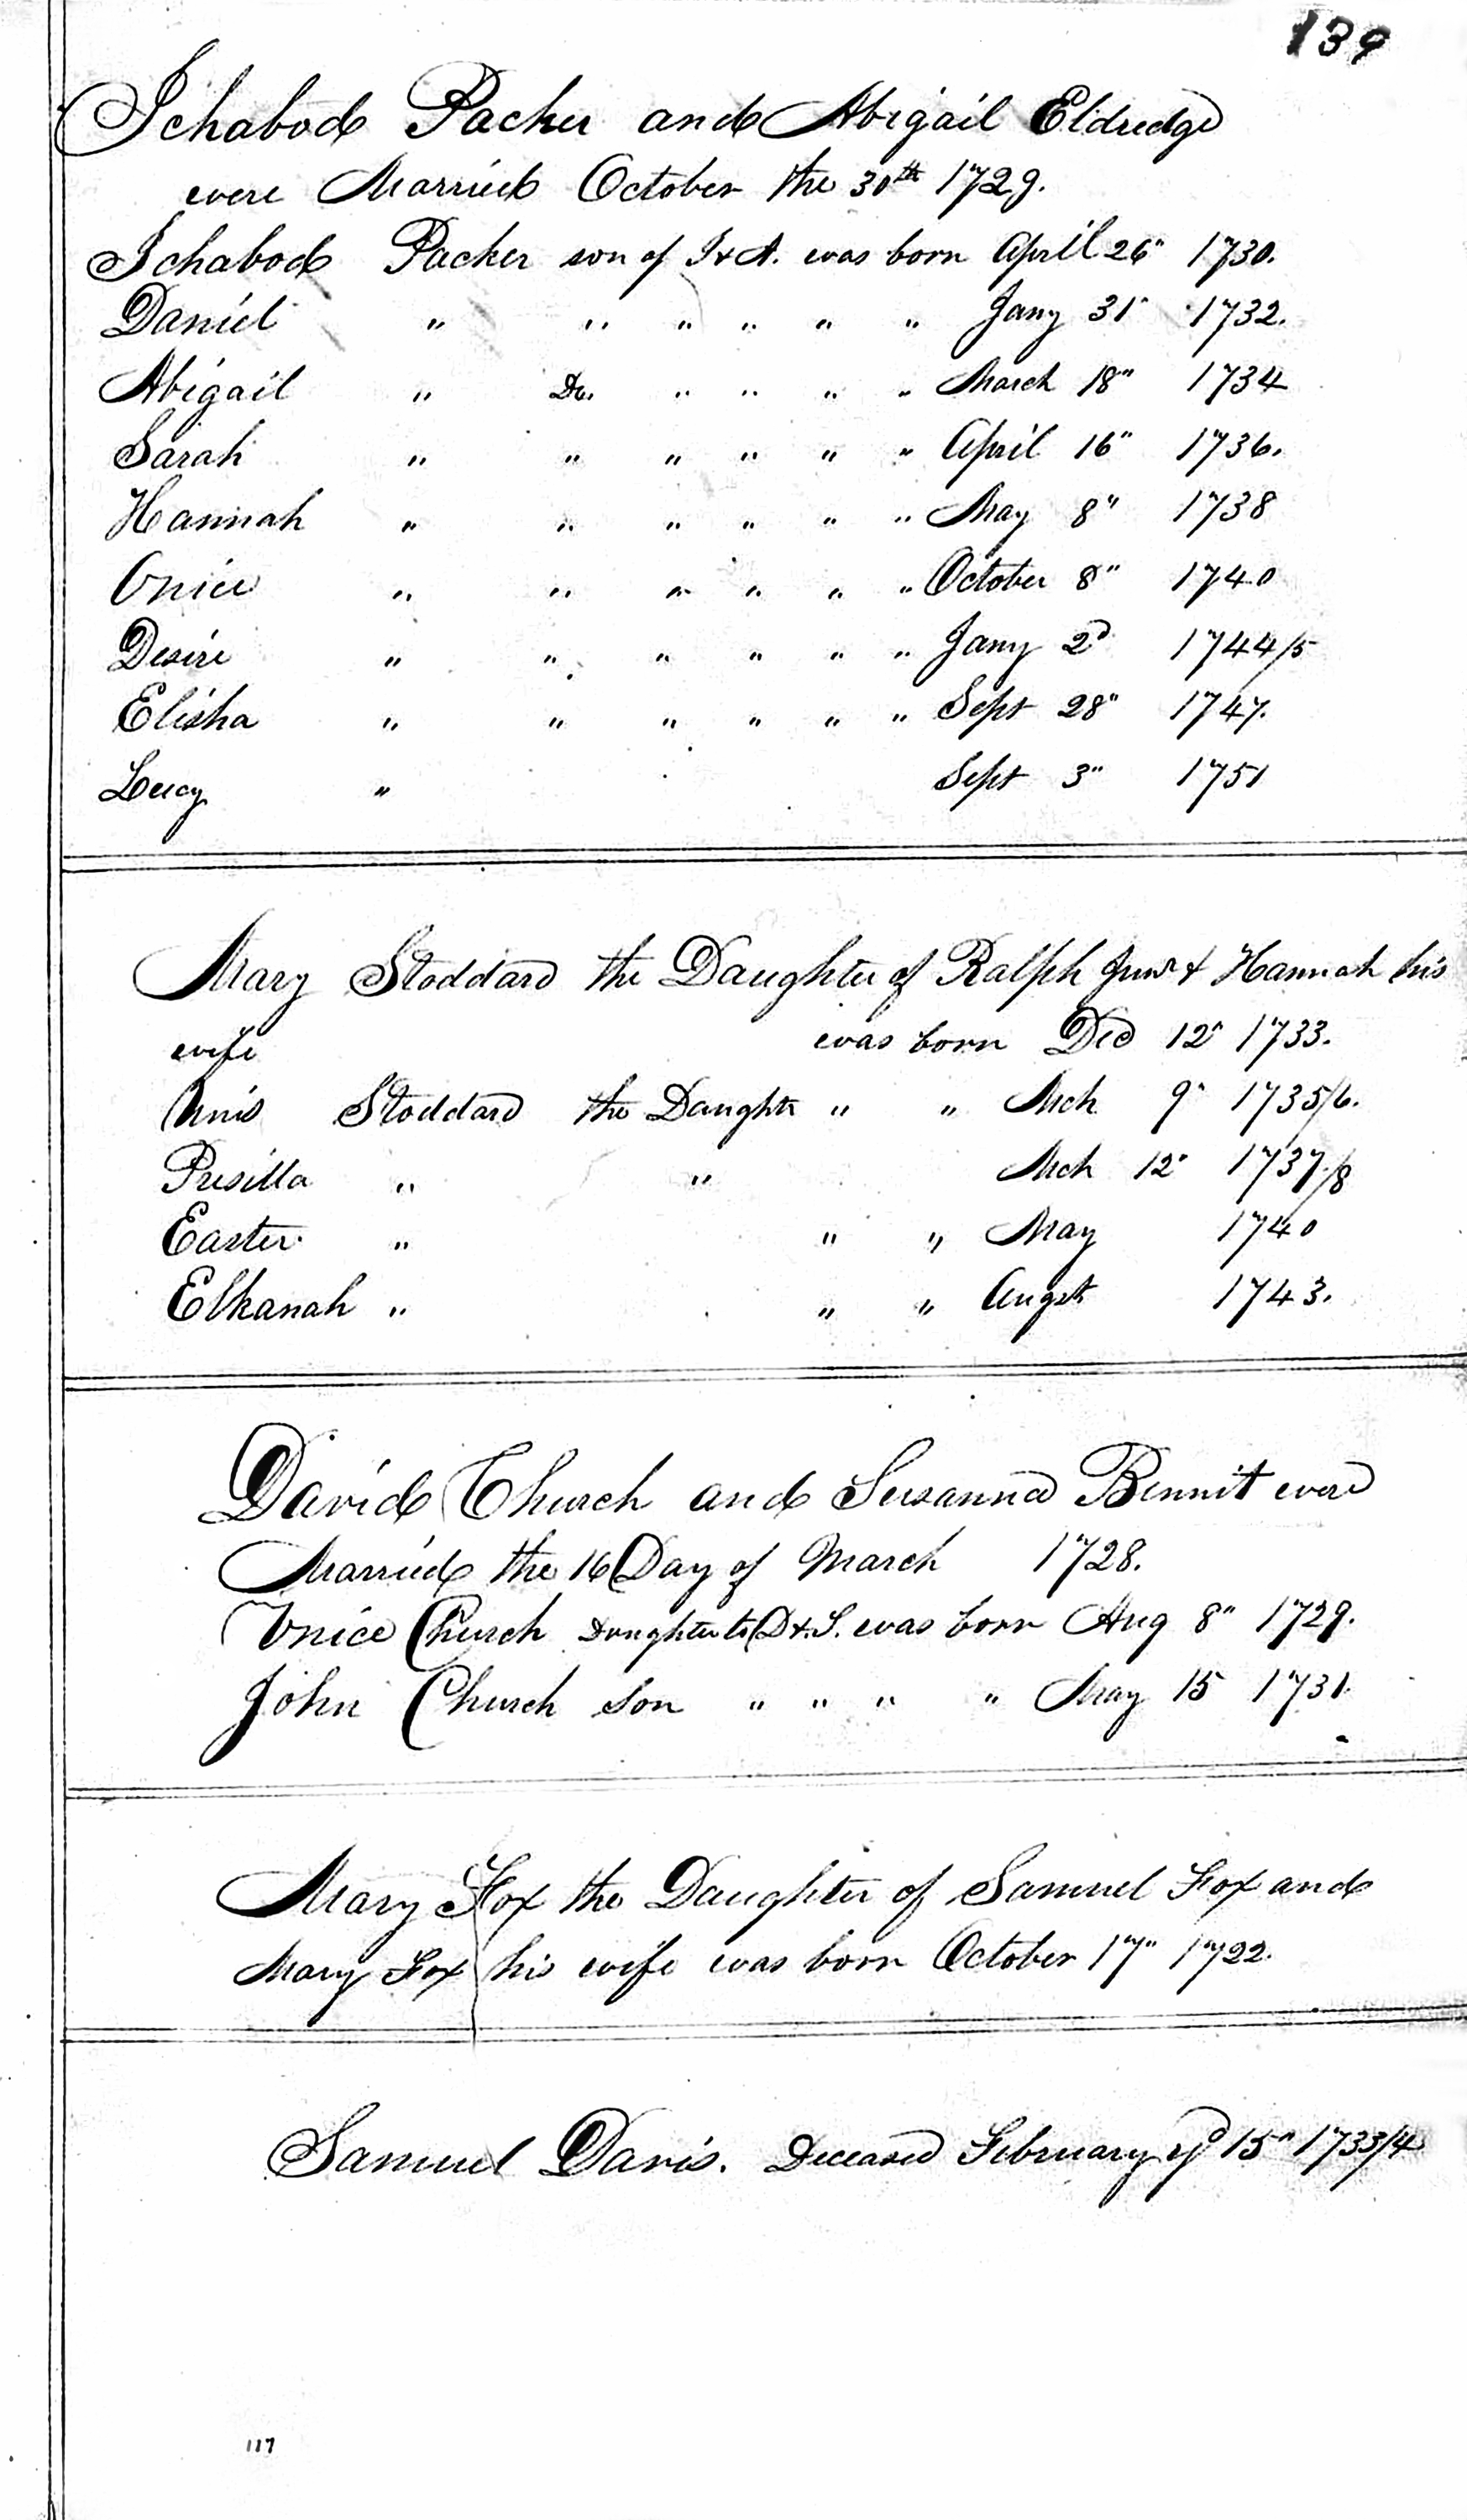 139
Ichabod Packer and Abigail Eldredge
were Married October the 30th 1729.
Ichabod Packer son of I & A. was born April 26" 1730.
Daniel " " " " " " Jany 31" 1732.
Abigail " Da. " " " " March 18" 1734
Sarah " " " " " " April 16" 1736.
Hannah " " " " " " May 8" 1738
Unice " " " " " " October 8" 1740
Desire " " " " " " Jany 2d 1744/5
Elisha " " " " " " Sept 28" 1747.
Lucy " Sept 3" 1751
Mary Stoddard the Daughter of Ralph Junr & Hannah his
wife was born Dec 12" 1733.
Unis Stoddard the Daughtr " " Mch 9" 1735/6.
Presilla " " Mch 12" 1737/8
Easter " " " May 1740
Elkanah " " " Augst 1743.
David Church and Susanna Bennit were
Married the 16 Day of March 1728.
Unice Church Daughter to D & S. was born Aug 8" 1729.
John Church son " " " " May 15 1731.
Mary Fox the Daughter of Samuel Fox and
Mary Fox his wife was born October 17" 1722.
Samuel Davis. Deceased February ye 15" 1733/4
117